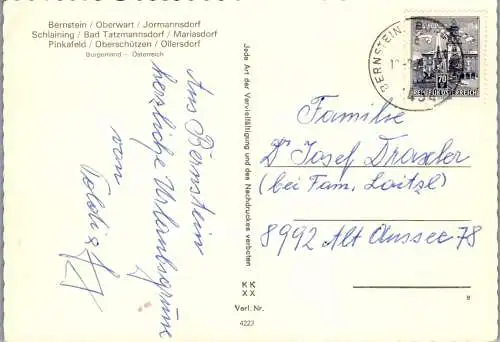 Bernstein / Oberwart / Jormannsdorf
Schlaining / Bad Tatzmannsdorf / Mariasdorf
Pinkafeld / Oberschützen / Ollersdorf
Burgenland – Österreich
Aus Bernstein
herzliche Urlaubsgrüsse
von
Jede Art der Vervielfältigung und des Nachdruckes verboten
KK
XX
Verl. Nr.
4223
BERNSTEIN
70
REPUBLIK ÖSTERREICH
Familie
Dr Josef Draxler
(bei Fam. Loitzl)
8992 Alt Aussee 78
8